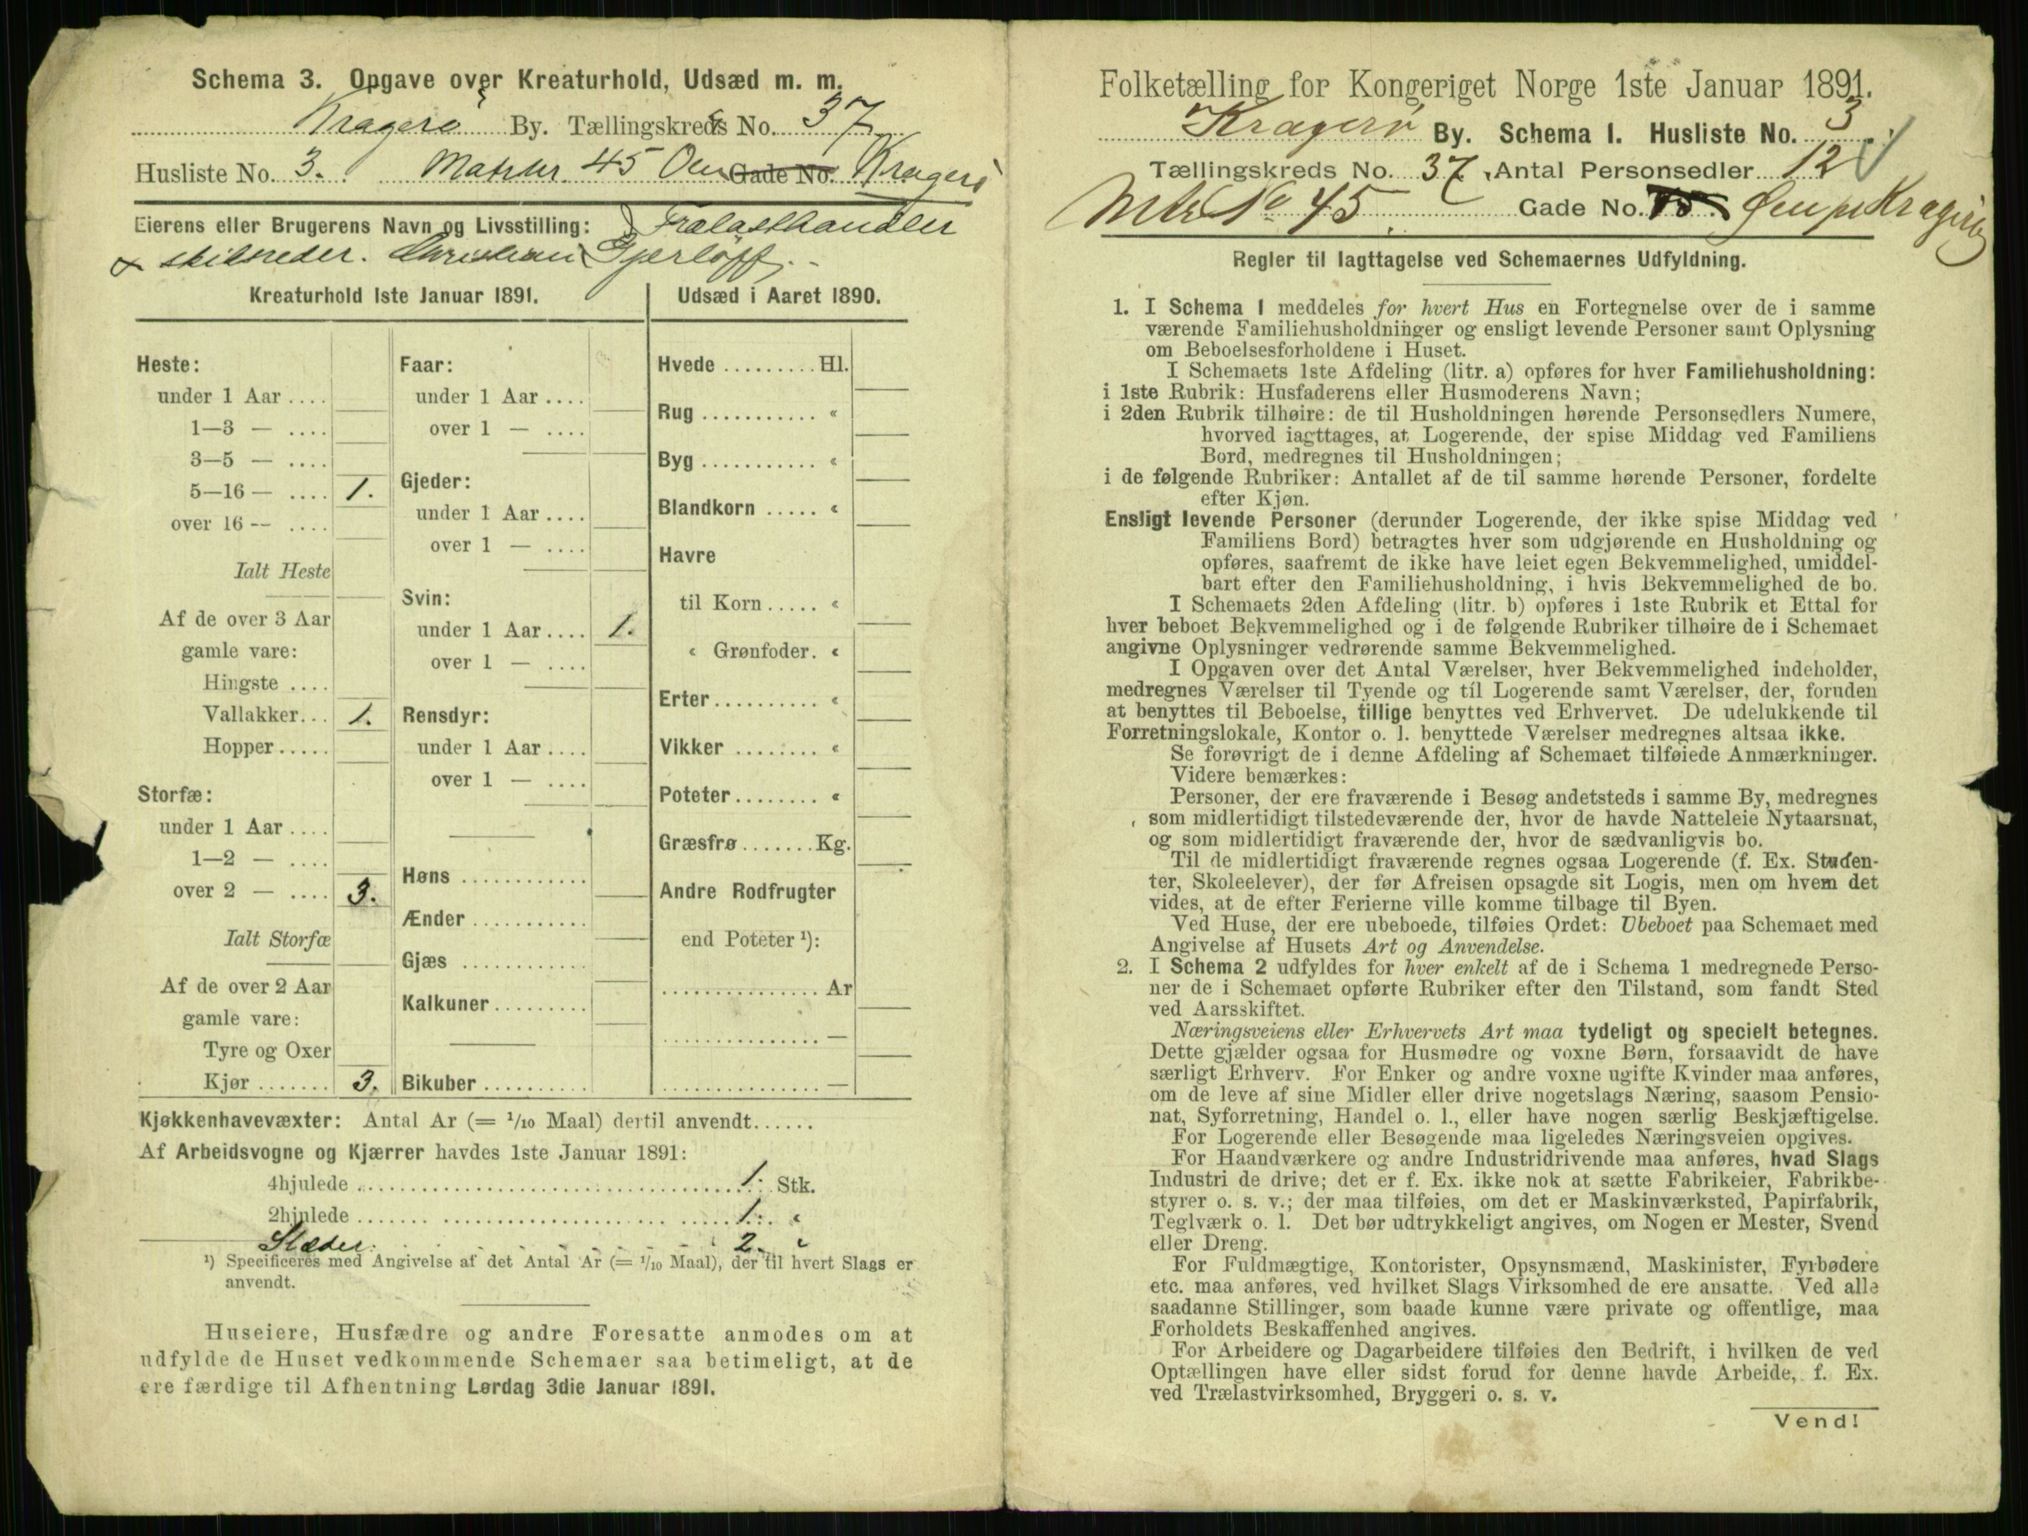 Schema 3. Opgave over Kreaturhold, Udsæd m. m.
Kragerö By. Tællingskreds No. 37
Husliste No. 3. Matr 45 Gade No. Kragerö
Eierens eller Brugerens Navn og Livsstilling: Trælasthandler
& skibsreder. Christian Gjerløff.
Kreaturhold 1ste Januar 1891.
Heste:
under 1 Aar ....
1—3 — ....
3—5 — ....
5—16 — .... 1.
over 16 -- ....
Ialt Heste
Af de over 3 Aar
gamle vare:
Hingste ....
Vallakker... 1.
Hopper.....
Storfæ:
under 1 Aar ....
1—2 — ....
over 2 — .... 3.
Ialt Storfæ
Af de over 2 Aar
gamle vare:
Tyre og Oxer
Kjør ....... 3.
Faar:
under 1 Aar ....
over 1 — ....
Gjeder:
under 1 Aar ....
over 1 — ....
Svin:
under 1 Aar .... 1.
over 1 — ....
Rensdyr:
under 1 Aar ....
over 1 — ....
Høns ............
Ænder ...........
Gjæs ............
Kalkuner.........
Bikuber ..........
Udsæd i Aaret 1890.
Hvede ......... Hl.
Rug ........... «
Byg ........... «
Blandkorn ..... «
Havre
til Korn ..... «
« Grønfoder. «
Erter.......... «
Vikker ........ «
Poteter........ «
Græsfrø ....... Kg.
Andre Rodfrugter
end Poteter ¹):
............... Ar
............... —
............... —
Kjøkkenhavevæxter: Antal Ar (= 1/10 Maal) dertil anvendt......
Af Arbeidsvogne og Kjærrer havdes 1ste Januar 1891:
4hjulede .................................... 1. Stk.
2hjulede .................................... 1. «
Slæder. 2. «
¹) Specificeres med Angivelse af det Antal Ar (= 1/10 Maal), der til hvert Slags er
anvendt.
Huseiere, Husfædre og andre Foresatte anmodes om at
udfylde de Huset vedkommende Schemaer saa betimeligt, at de
ere færdige til Afhentning Lørdag 3die Januar 1891.
Folketælling for Kongeriget Norge 1ste Januar 1891.
Kragerø By. Schema 1. Husliste No. 3.
Tællingskreds No. 37. Antal Personsedler 12
Mtr No 45. Gade No.
Regler til Iagttagelse ved Schemaernes Udfyldning.
1. I Schema 1 meddeles for hvert Hus en Fortegnelse over de i samme
værende Familiehusholdninger og ensligt levende Personer samt Oplysning
om Beboelsesforholdene i Huset.
I Schemaets 1ste Afdeling (litr. a) opføres for hver Familiehusholdning:
i 1ste Rubrik: Husfaderens eller Husmoderens Navn;
i 2den Rubrik tilhøire: de til Husholdningen hørende Personsedlers Numere,
hvorved iagttages, at Logerende, der spise Middag ved Familiens
Bord, medregnes til Husholdningen;
i de følgende Rubriker: Antallet af de til samme hørende Personer, fordelte
efter Kjøn.
Ensligt levende Personer (derunder Logerende, der ikke spise Middag ved
Familiens Bord) betragtes hver som udgjørende en Husholdning og
opføres, saafremt de ikke have leiet egen Bekvemmelighed, umiddel-
bart efter den Familiehusholdning, i hvis Bekvemmelighed de bo.
I Schemaets 2den Afdeling (litr. b) opføres i 1ste Rubrik et Ettal for
hver beboet Bekvemmelighed og i de følgende Rubriker tilhøire de i Schemaet
angivne Oplysninger vedrørende samme Bekvemmelighed.
I Opgaven over det Antal Værelser, hver Bekvemmelighed indeholder,
medregnes Værelser til Tyende og til Logerende samt Værelser, der, foruden
at benyttes til Beboelse, tillige benyttes ved Erhvervet. De udelukkende til
Forretningslokale, Kontor o. l. benyttede Værelser medregnes altsaa ikke.
Se forøvrigt de i denne Afdeling af Schemaet tilføiede Anmærkninger.
Videre bemærkes:
Personer, der ere fraværende i Besøg andetsteds i samme By, medregnes
som midlertidigt tilstedeværende der, hvor de havde Natteleie Nytaarsnat,
og som midlertidigt fraværende der, hvor de sædvanligvis bo.
Til de midlertidigt fraværende regnes ogsaa Logerende (f. Ex. Studen-
ter, Skoleelever), der før Afreisen opsagde sit Logis, men om hvem det
vides, at de efter Ferierne ville komme tilbage til Byen.
Ved Huse, der ere ubeboede, tilføies Ordet: Ubeboet paa Schemaet med
Angivelse af Husets Art og Anvendelse.
2. I Schema 2 udfyldes for hver enkelt af de i Schema 1 medregnede Perso-
ner de i Schemaet opførte Rubriker efter den Tilstand, som fandt Sted
ved Aarsskiftet.
Næringsveiens eller Erhvervets Art maa tydeligt og specielt betegnes.
Dette gjælder ogsaa for Husmødre og voxne Børn, forsaavidt de have
særligt Erhverv. For Enker og andre voxne ugifte Kvinder maa anføres,
om de leve af sine Midler eller drive nogetslags Næring, saasom Pensio-
nat, Syforretning, Handel o. l., eller have nogen særlig Beskjæftigelse.
For Logerende eller Besøgende maa ligeledes Næringsveien opgives.
For Haandværkere og andre Industridrivende maa anføres, hvad Slags
Industri de drive; det er f. Ex. ikke nok at sætte Fabrikeier, Fabrikbe-
styrer o. s. v.; der maa tilføies, om det er Maskinværksted, Papirfabrik,
Teglværk o. l. Det bør udtrykkeligt angives, om Nogen er Mester, Svend
eller Dreng.
For Fuldmægtige, Kontorister, Opsynsmænd, Maskinister, Fyrbødere
etc. maa anføres, ved hvilket Slags Virksomhed de ere ansatte. Ved alle
saadanne Stillinger, som baade kunne være private og offentlige, maa
Forholdets Beskaffenhed angives.
For Arbeidere og Dagarbeidere tilføies den Bedrift, i hvilken de ved
Optællingen have eller sidst forud for denne havde Arbeide, f. Ex.
ved Trælastvirksomhed, Bryggeri o. s. v.
Vend!